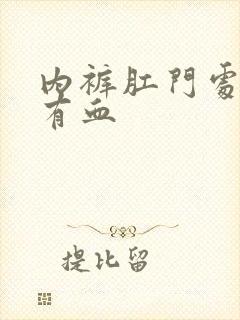 內褲肛門處
有血
提比留